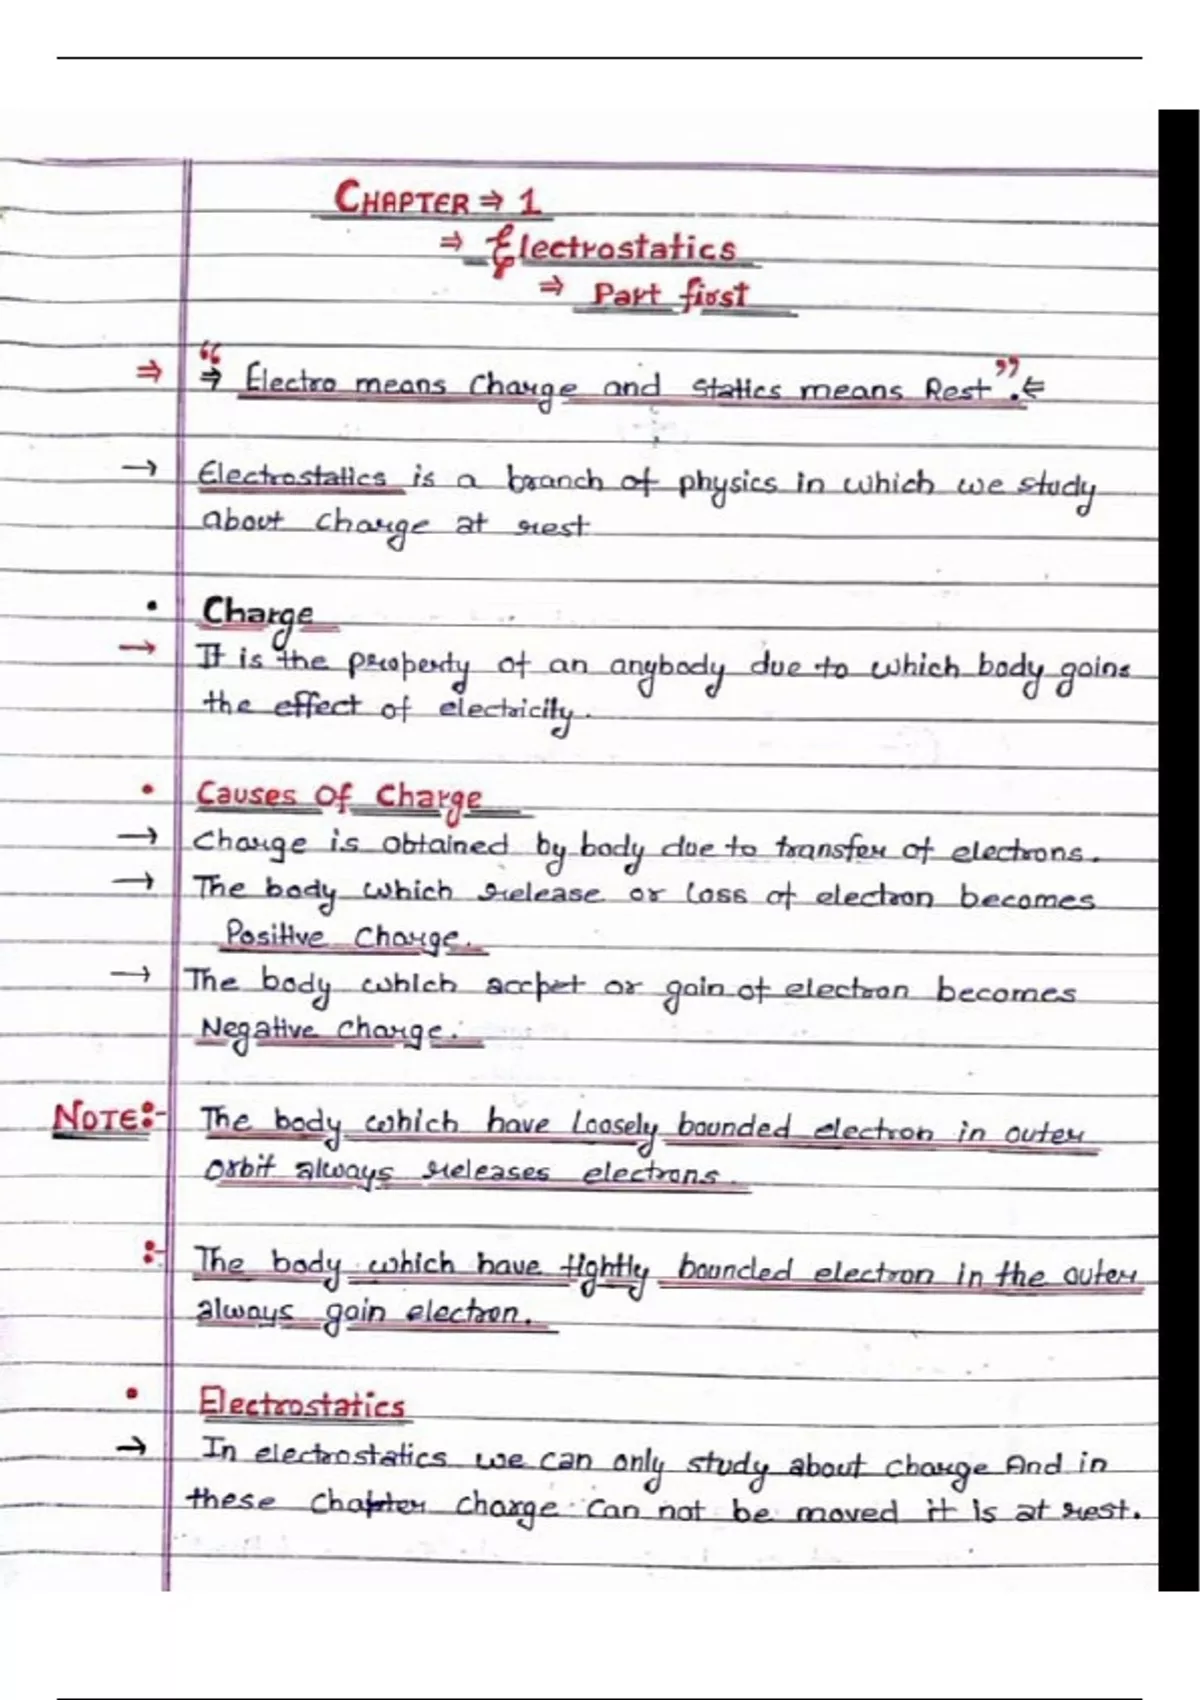 CHAPTER ⇒ 1
⇒ Electrostatics
⇒ Part first
⇒ “ ⇒ Electro means Charge and Statics means Rest ”. ⇐
→ Electrostatics is a branch of physics in which we study
about charge at rest
• Charge
→ It is the property of an anybody due to which body gains
the effect of electricity.
• Causes Of Charge
→ Charge is obtained by body due to transfer of electrons.
→ The body which release or loss of electron becomes
Positive Charge.
→ The body which accpet or gain of electron becomes
Negative Charge.
NOTE:- The body which have loosely bounded electron in outer
orbit always releases electrons.
:- The body which have tightly bounded electron in the outer
always gain electron.
• Electrostatics
→ In electrostatics we can only study about charge And in
these chapter charge can not be moved it is at rest.